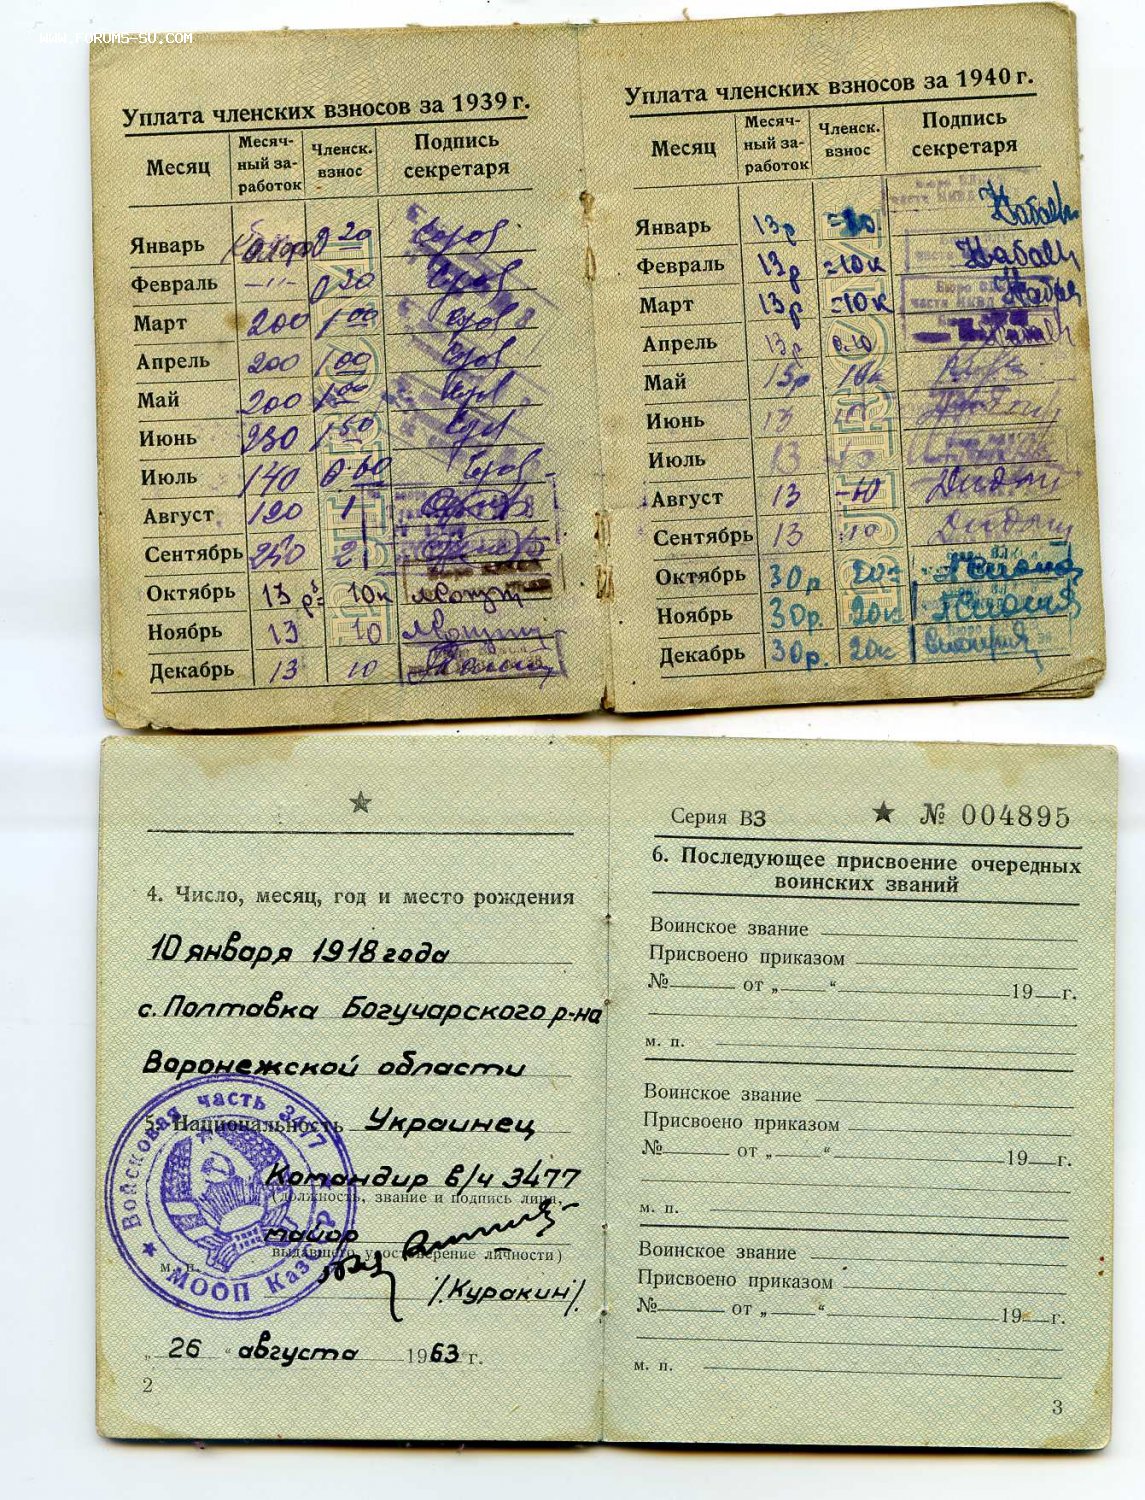 WWW.FORUMS-SU.COM
Уплата членских взносов за 1939 г.
Месяц Месяч-ный за-работок Членск. взнос Подпись секретаря
Январь 0 20
Февраль —"— 0 20
Март 200 1 00
Апрель 200 1 00
Май 200 1 00
Июнь 230 1 50
Июль 140 0 60
Август 190 1
Сентябрь 250 2
Октябрь 13 10к
Ноябрь 13 10
Декабрь 13 10
Уплата членских взносов за 1940 г.
Месяц Месяч-ный за-работок Членск. взнос Подпись секретаря
Январь 13р
Февраль 13р =10к
Март 13р =10к
Апрель 13р 0.10
Май 13р 10к
Июнь 13
Июль 13
Август 13 -10
Сентябрь 13 10
Октябрь 30р 20к
Ноябрь 30р. 20к
Декабрь 30р. 20к
4. Число, месяц, год и место рождения
10 января 1918 года
с. Полтавка Богучарского р-на
Воронежской области
5. Национальность Украинец
Командир в/ч 3477
(должность, звание и подпись лица,
майор
выдавшего удостоверение личности)
м. п.
/Куракин/
„26“ августа 1963 г.
2
Войсковая часть 3477
МООП КазССР
Серия ВЗ № 004895
6. Последующее присвоение очередных
воинских званий
Воинское звание
Присвоено приказом
№ от „ “ 19 г.
м. п.
Воинское звание
Присвоено приказом
№ от „ “ 19 г.
м. п.
Воинское звание
Присвоено приказом
№ от „ “ 19 г.
м. п.
3